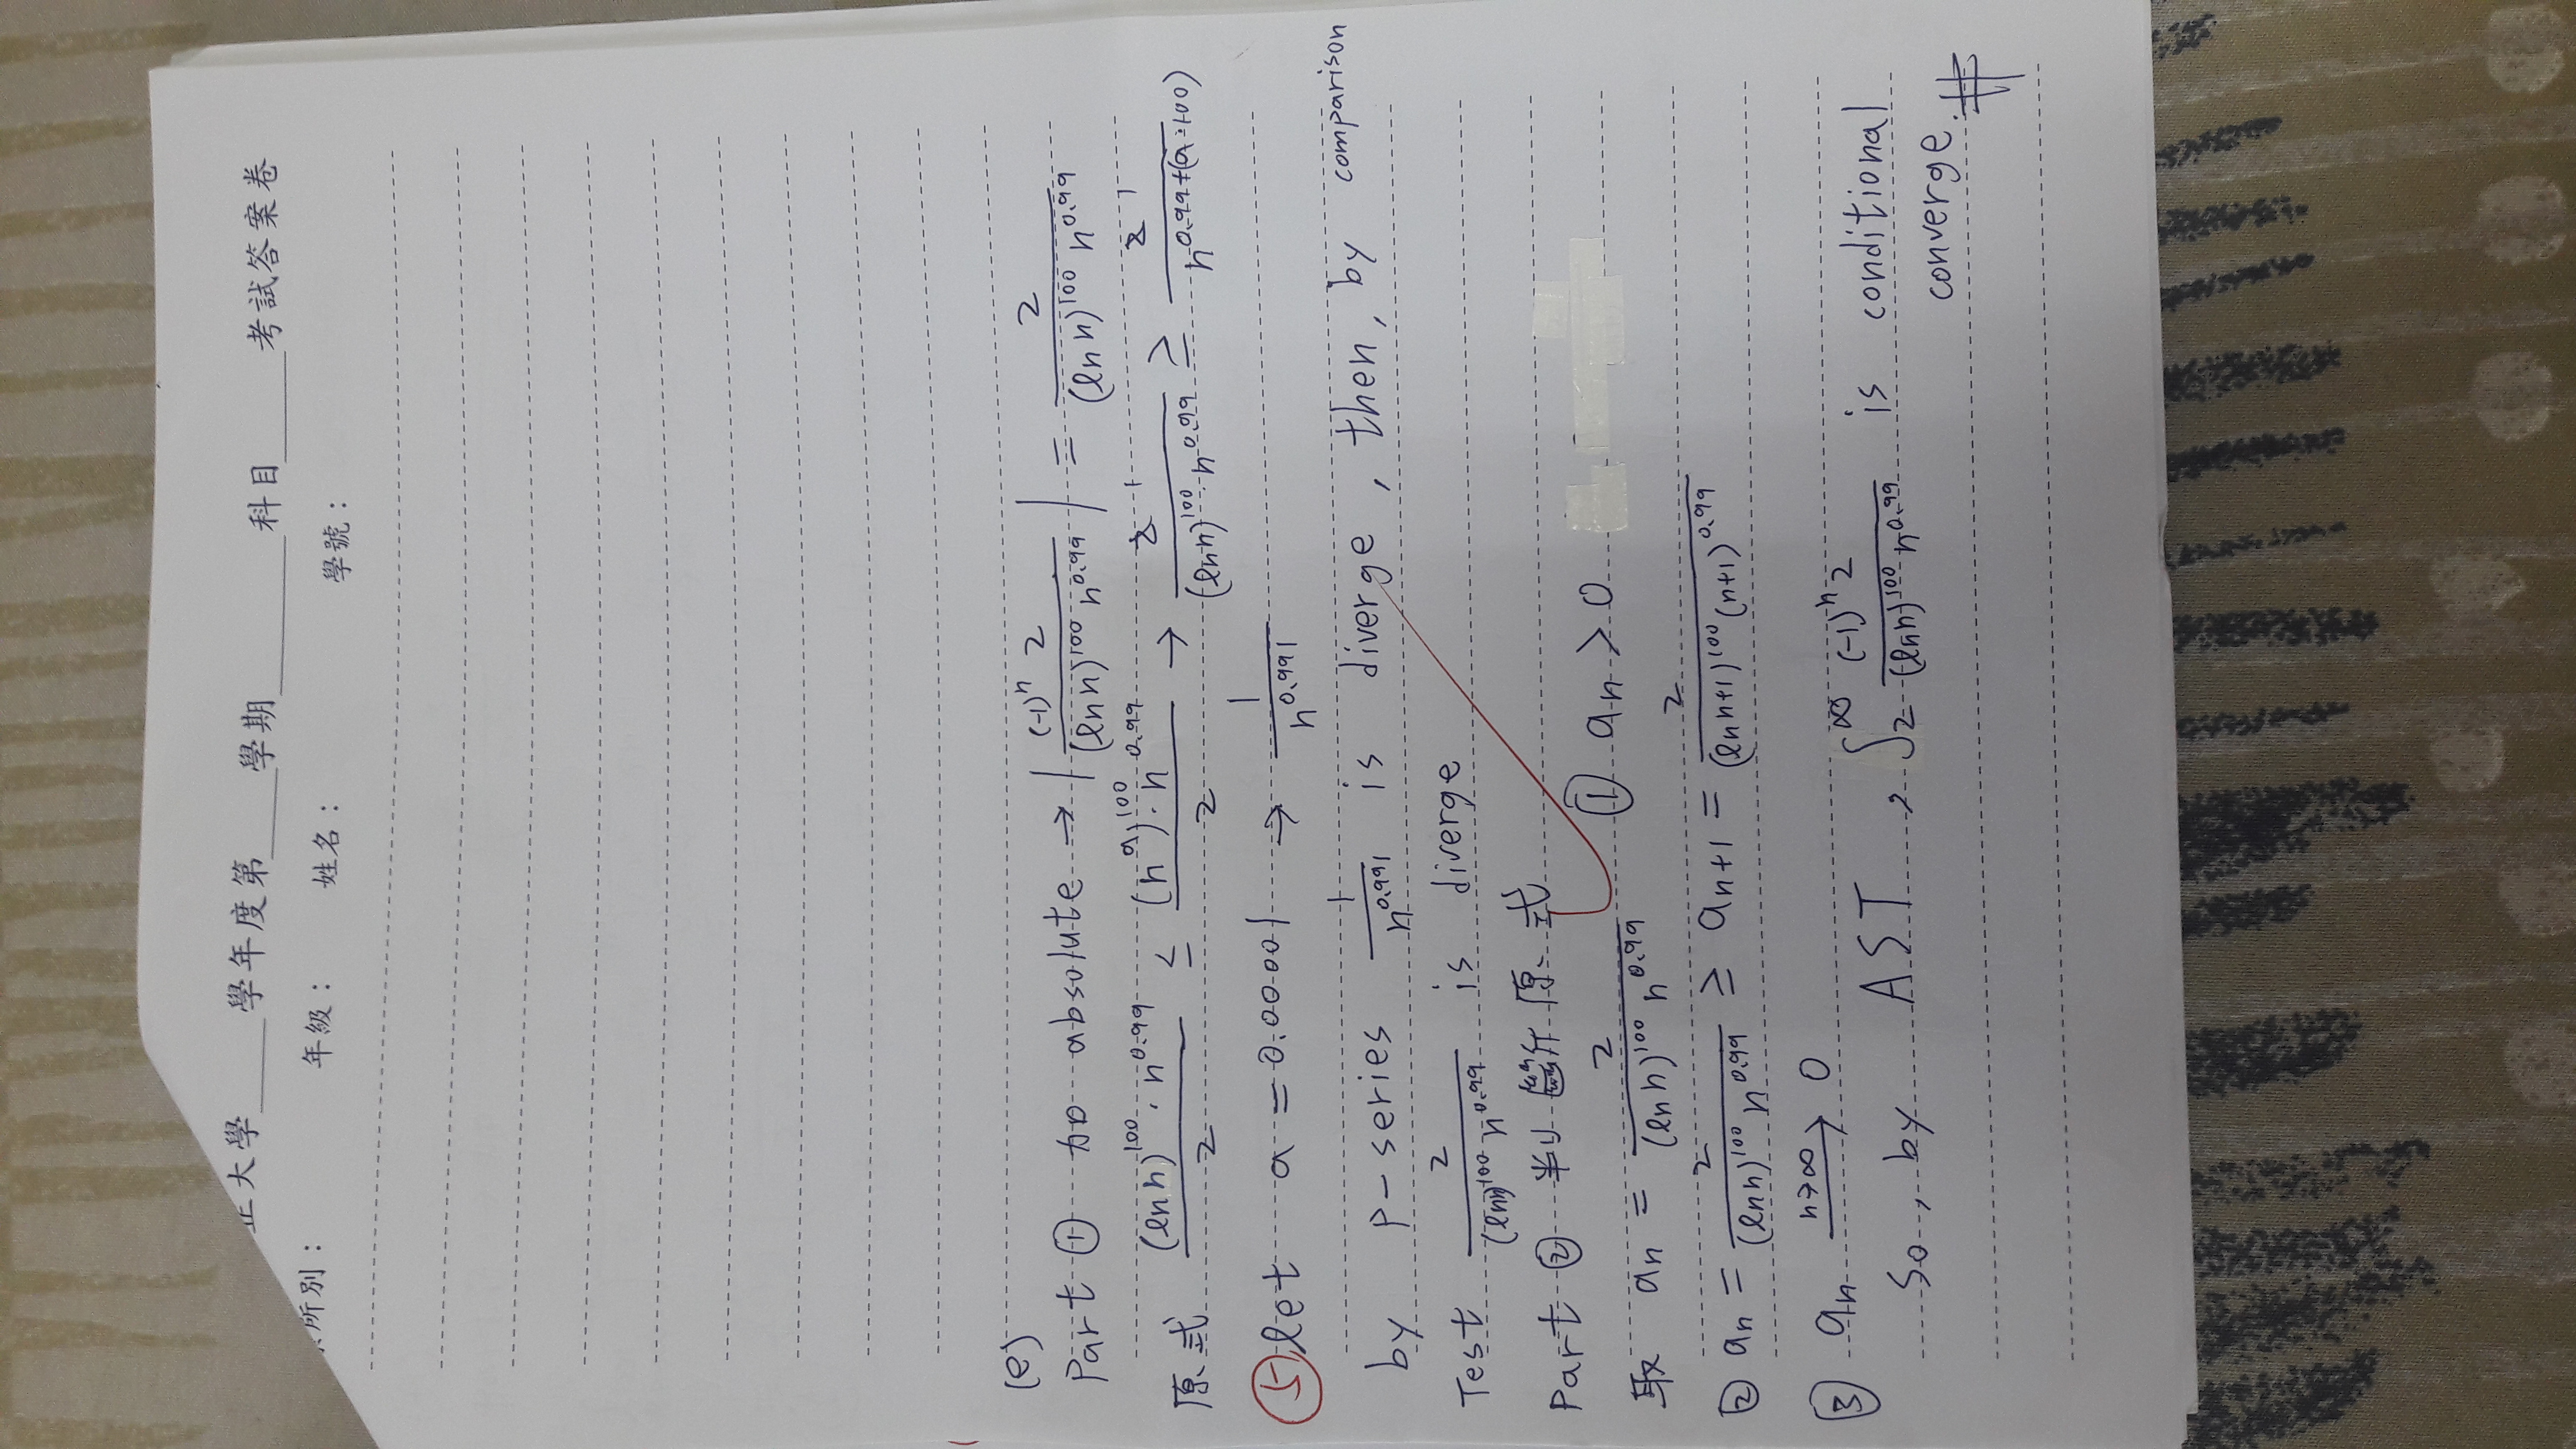 正大學____學年度第____學期________科目_____考試答案卷
所別： 年級： 姓名： 學號：
(e)
Part ① to absolute → | (-1)ⁿ 2 / (ln n)¹⁰⁰ n^0.99 | = 2 / (ln n)¹⁰⁰ n^0.99
原式 (ln n)¹⁰⁰ · n^0.99 / 2 ≤ (n^a)¹⁰⁰ · n^0.99 / 2 → 2 1 / (ln n)¹⁰⁰ · n^0.99 ≥ 2 1 / n^0.99+(a·100)
⑤ let a = 0.00001 → 1 / n^0.991
by P-series 1 / n^0.991 is diverge , then, by comparison
Test 2 / (ln n)¹⁰⁰ n^0.99 is diverge
Part ② 判斷原式
取 an = 2 / (ln n)¹⁰⁰ n^0.99 ① an > 0
② an = 2 / (ln n)¹⁰⁰ n^0.99 ≥ an+1 = 2 / (ln n+1)¹⁰⁰ (n+1)^0.99
③ an n→∞ → 0
So, by AST , ∫₂^∞ (-1)ⁿ 2 / (ln n)¹⁰⁰ n^0.99 is conditional
converge. #